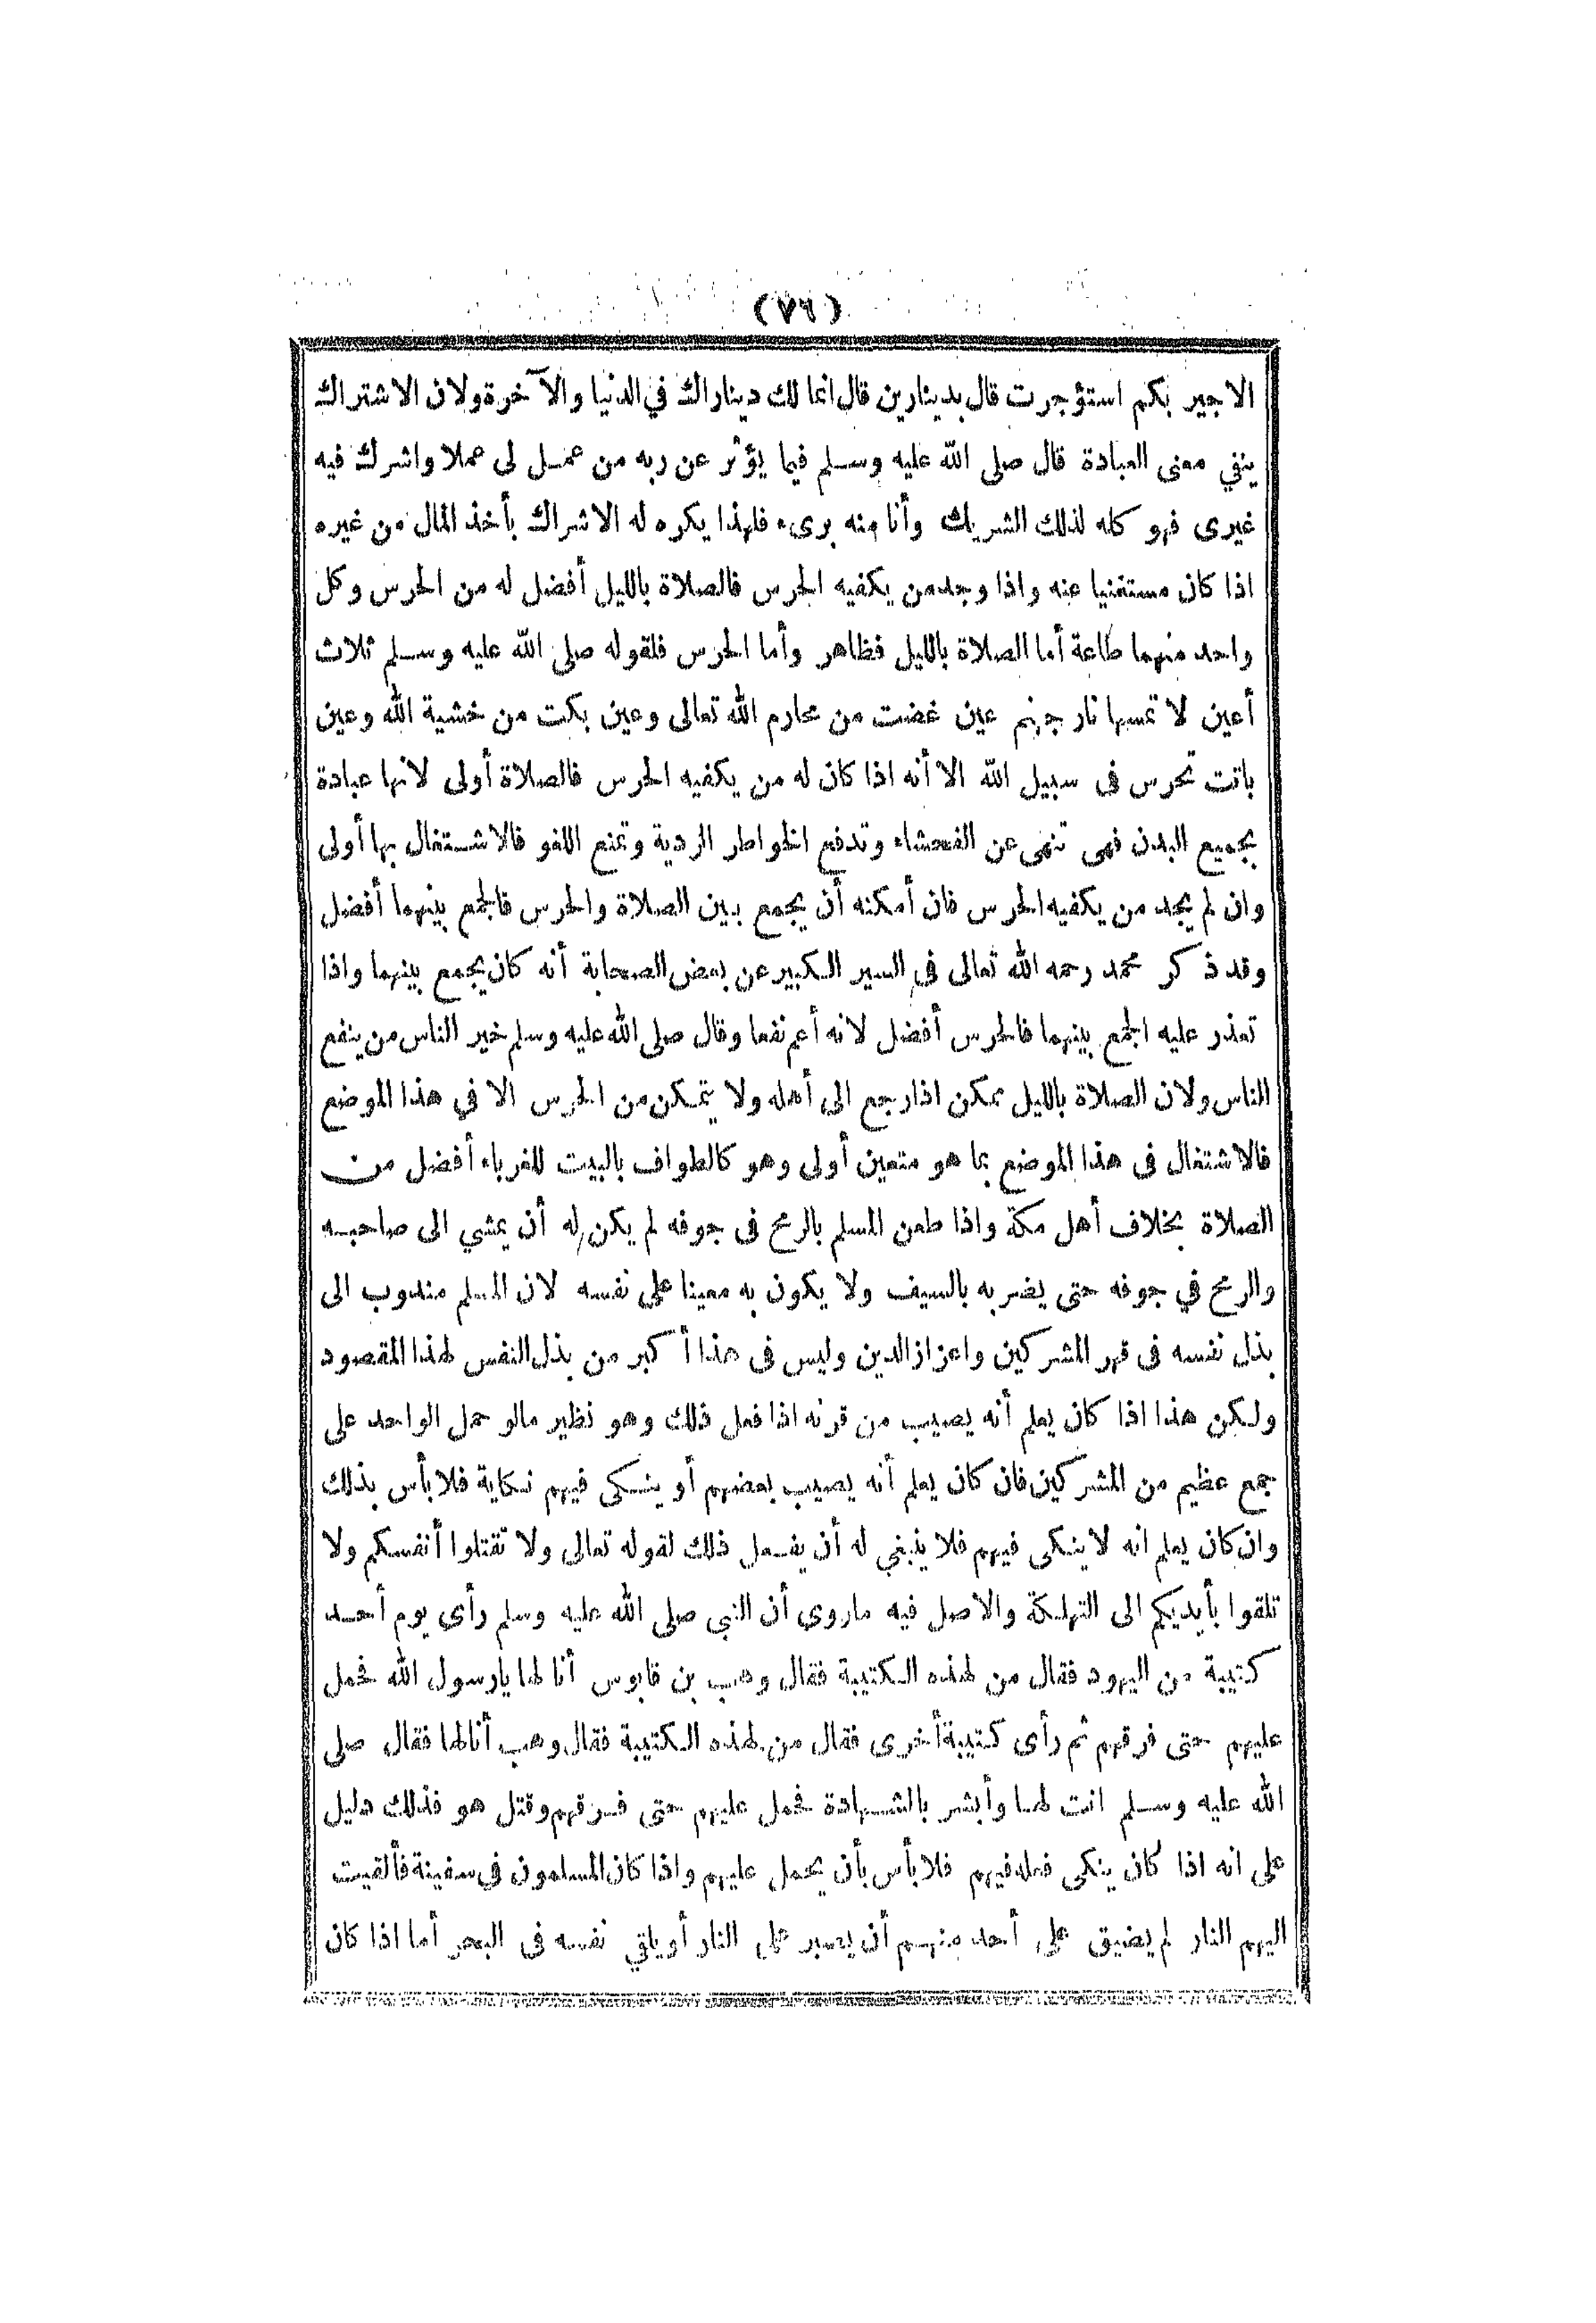 (٧٦)
الاجير بكم استؤجرت قال بدينارين قال انما لك ديناراك في الدنيا والآخرة ولان الاشتراك
ينفي معنى العبادة قال صلى الله عليه وسلم فيما يؤثر عن ربه من عمل لى عملا واشرك فيه
غيرى فهو كله لذلك الشريك وأنا منه برىء فلهذا يكره له الاشراك بأخذ المال من غيره
اذا كان مستغنيا عنه واذا وجد من يكفيه الحرس فالصلاة بالليل أفضل له من الحرس وكل
واحد منهما طاعة أما الصلاة بالليل فظاهر وأما الحرس فلقوله صلى الله عليه وسلم ثلاث
أعين لا تمسها نار جهنم عين غضت من محارم الله تعالى وعين بكت من خشية الله وعين
باتت تحرس فى سبيل الله الا أنه اذا كان له من يكفيه الحرس فالصلاة أولى لانها عبادة
بجميع البدن فهى تنهى عن الفحشاء وتدفع الخواطر الردية وتمنع اللغو فالاشتغال بها أولى
وان لم يجد من يكفيه الحرس فان أمكنه أن يجمع بين الصلاة والحرس فالجمع بينهما أفضل
وقد ذكر محمد رحمه الله تعالى في السير الكبير عن بعض الصحابة أنه كان يجمع بينهما واذا
تعذر عليه الجمع بينهما فالحرس أفضل لانه أعم نفعا وقال صلى الله عليه وسلم خير الناس من ينفع
الناس ولان الصلاة بالليل ممكن اذا رجع الى أهله ولا يتمكن من الحرس الا في هذا الموضع
فالاشتغال فى هذا الموضع بما هو متعين أولى وهو كالطواف بالبيت للغرباء أفضل من
الصلاة بخلاف أهل مكة واذا طعن المسلم بالرمح فى جوفه لم يكن له أن يمشي الى صاحبه
والرمح في جوفه حتى يضربه بالسيف ولا يكون به معينا على نفسه لان المسلم مندوب الى
بذل نفسه فى قهر المشركين واعزاز الدين وليس فى هذا أكبر من بذل النفس لهذا المقصود
ولكن هذا اذا كان يعلم أنه يصيب من قرنه اذا فعل ذلك وهو نظير مالو حمل الواحد على
جمع عظيم من المشركين فان كان يعلم أنه يصيب بعضهم أو ينكى فيهم نكاية فلا بأس بذلك
وان كان يعلم انه لا ينكى فيهم فلا ينبغي له أن يفعل ذلك لقوله تعالى ولا تقتلوا أنفسكم ولا
تلقوا بأيديكم الى التهلكة والاصل فيه ماروي أن النبي صلى الله عليه وسلم رأى يوم أحد
كتيبة من اليهود فقال من لهذه الكتيبة فقال وهب بن قابوس أنا لها يارسول الله فحمل
عليهم حتى فرقهم ثم رأى كتيبة أخرى فقال من لهذه الكتيبة فقال وهب أنا لها فقال صلى
الله عليه وسلم انت لها وأبشر بالشهادة فحمل عليهم حتى فرقهم وقتل هو فذلك دليل
على انه اذا كان ينكى فعله فيهم فلا بأس بأن يحمل عليهم واذا كان المسلمون في سفينة فألقيت
اليهم النار لم يضيق على أحد منهم أن يصبر على النار أو يلقي نفسه فى البحر أما اذا كان